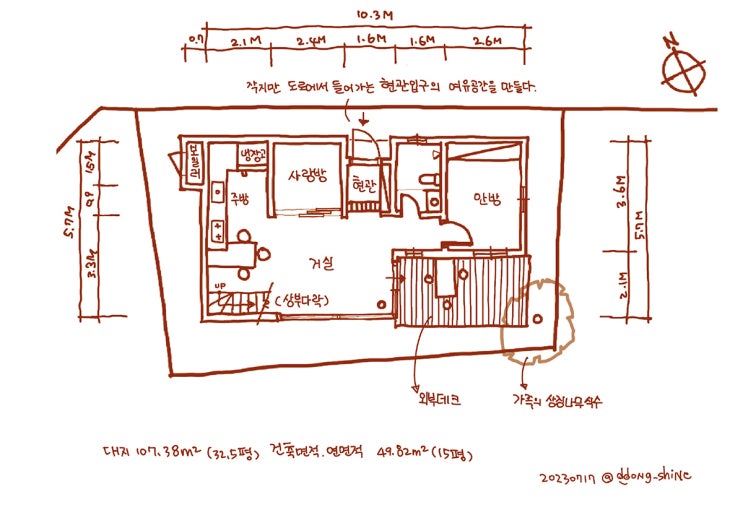 10.3M
0.7 2.1M 2.4M 1.6M 1.6M 2.6M
N
작지만 도로에서 들어가는 현관입구의 여유공간을 만든다.
1.5M
0.9
3.3M
5.7M
보일러
냉장고
주방
사랑방
현관
안방
거실
UP
(상부다락)
3.6M
2.1M
5.7M
외부데크
가족의 상징나무식수
대지 107.38m² (32.5평) 건축면적.연면적 49.82m² (15평)
20230717 @ddong_shine